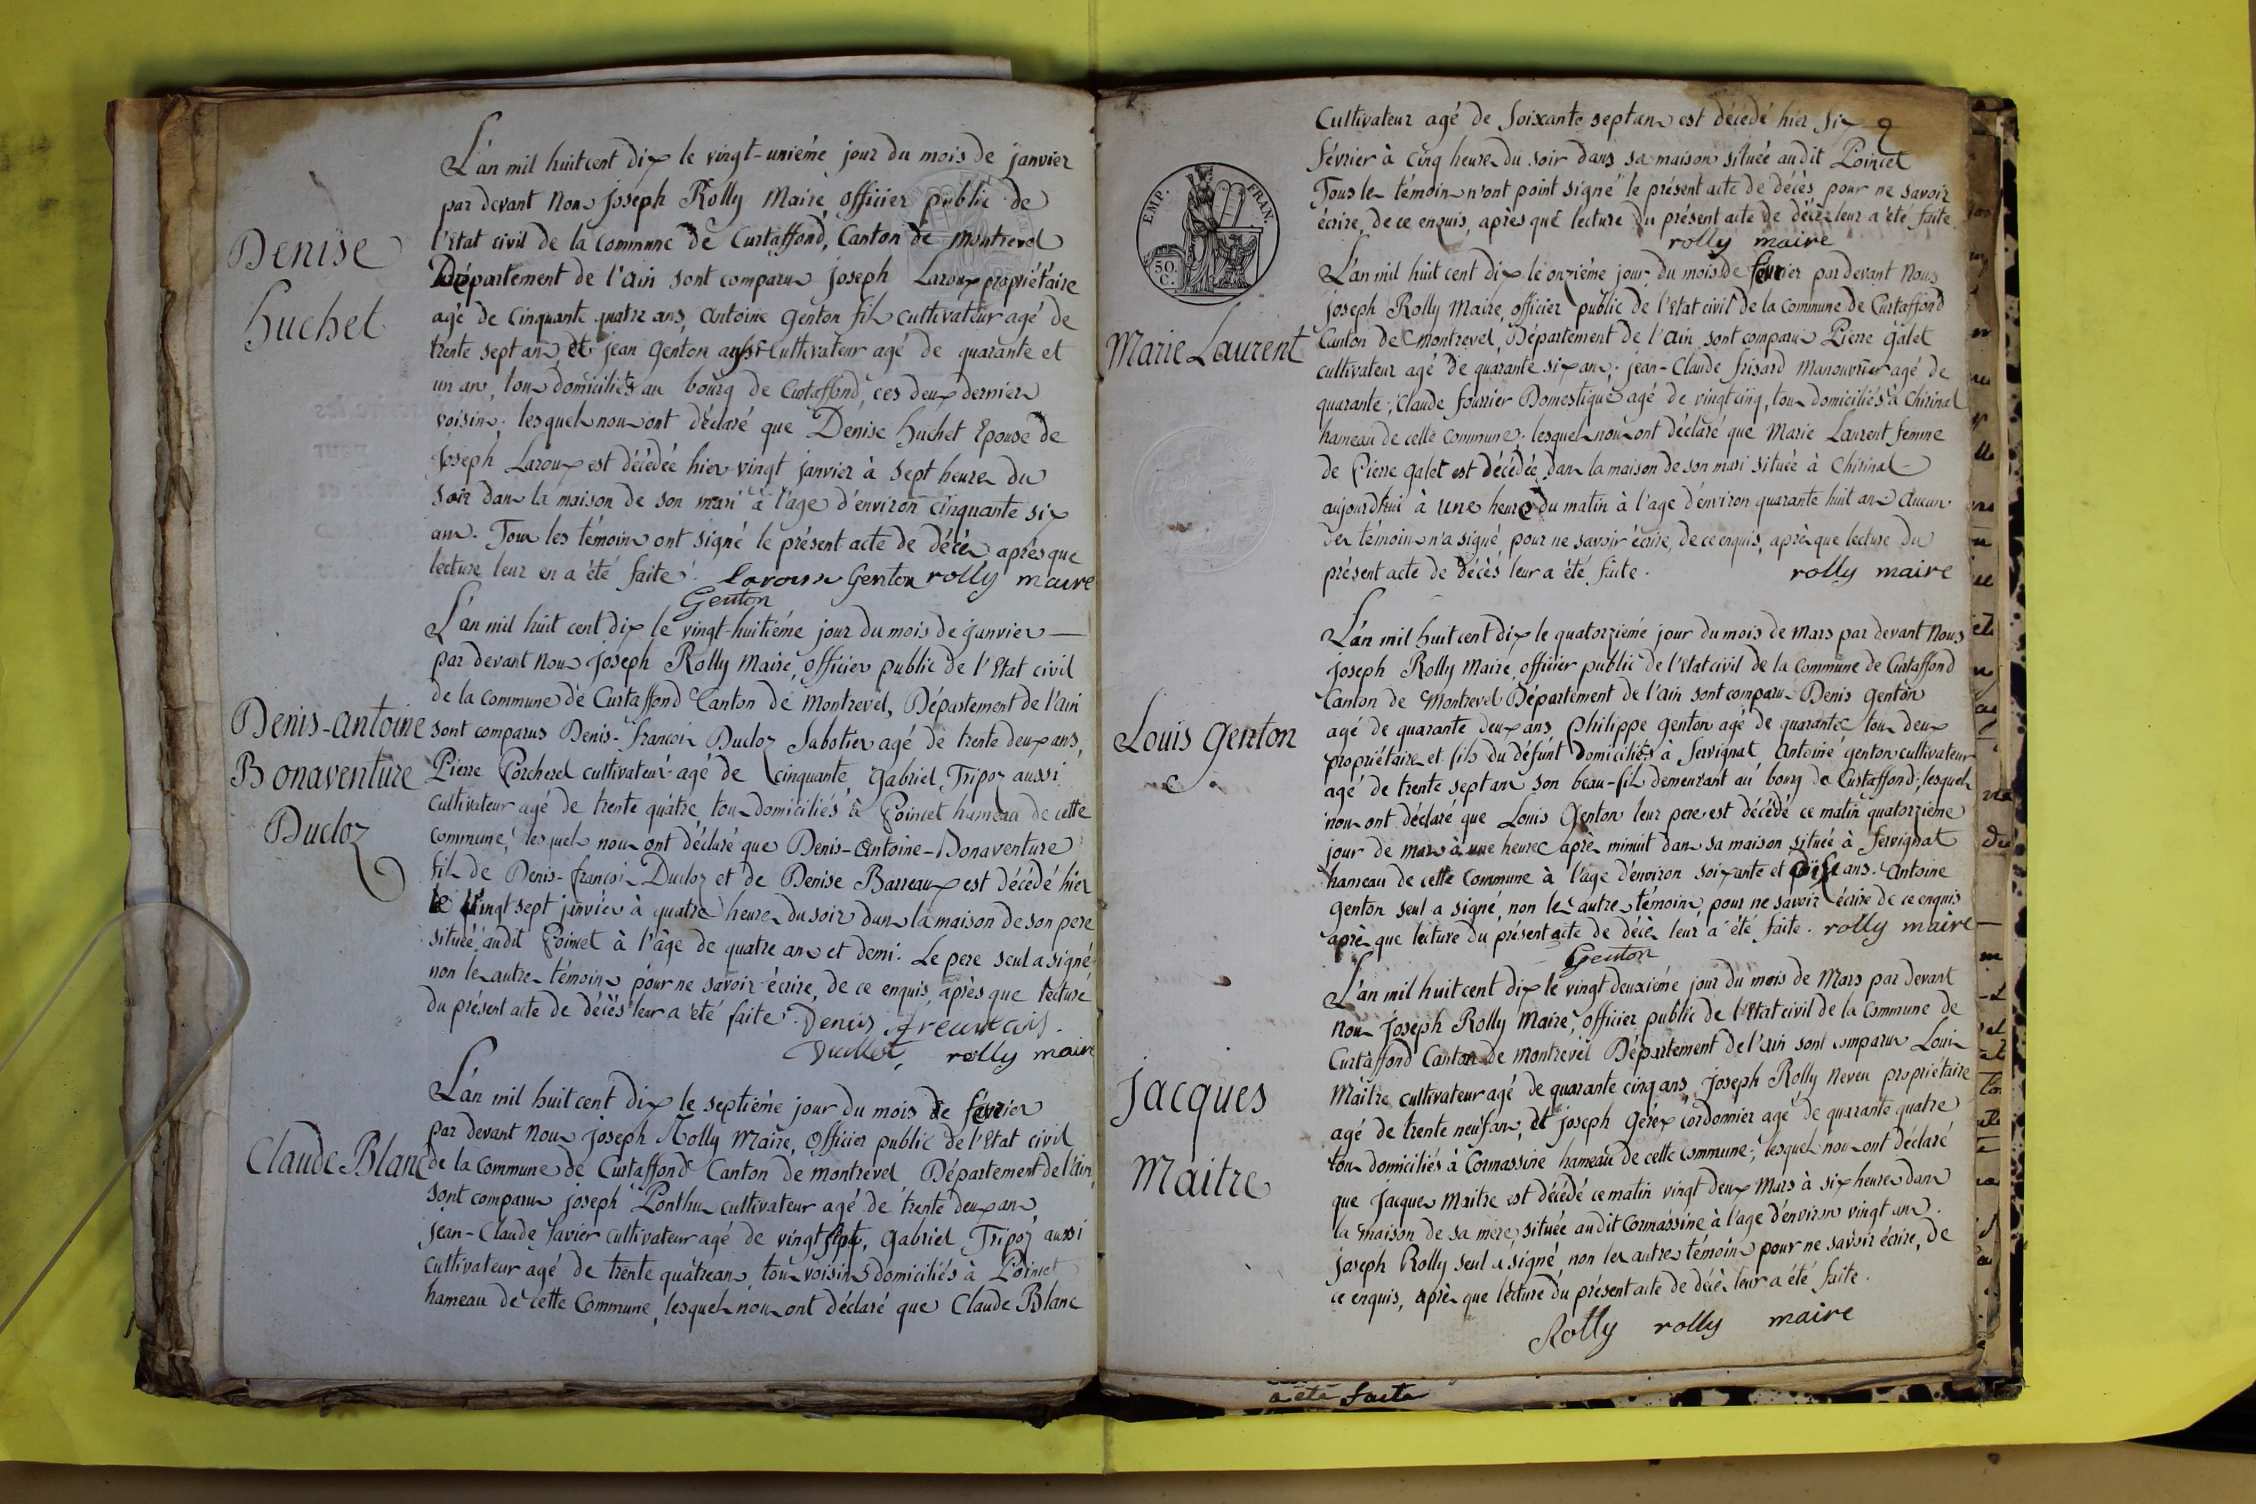 L'an mil huit cent dix le vingt-unième jour du mois de janvier
par devant Nous Joseph Rolly Maire officier public de
l'Etat civil de la Commune de Curtaffond, Canton de Montrevel
Département de l'Ain sont comparus Joseph Laroux propriétaire
agé de Cinquante quatre ans, Antoine Genton fils cultivateur agé de
trente sept ans, et jean Genton aussi Cultivateur agé de quarante et
un ans, tous domiciliés au bourg de Curtaffond, ces deux derniers
voisins. lesquels nous ont déclaré que Denise huchet Epouse de
Joseph Laroux est décédée hier vingt janvier à sept heures du
soir dans la maison de son mari à l'age d'environ cinquante six
ans. Tous les témoins ont signé le présent acte de décès après que
lecture leur en a été faite. Laroux Genton rolly maire
Genton
Denise
huchet
L'an mil huit cent dix le vingt-huitième jour du mois de janvier
par devant Nous Joseph Rolly Maire, officier public de l'Etat civil
de la commune de Curtaffond Canton de Montrevel, Département de l'Ain
sont comparus Denis-françois Ducloz Sabotier agé de trente deux ans,
Pierre Corcherel cultivateur agé de cinquante, Gabriel Tripoz aussi
cultivateur agé de trente quatre, tous domiciliés à Poincet hameau de cette
commune, lesquels nous ont déclaré que Denis-Antoine-Bonaventure
fils de Denis-françois Ducloz et de Denise Barreaux est décédé hier
le vingt sept janvier à quatre heures du soir dans la maison de son pere
située audit Poincet à l'âge de quatre ans et demi. Le pere seul a signé
non les autres témoins pour ne savoir écrire, de ce enquis, après que lecture
du présent acte de décès leur a été faite. Denis
rolly maire
Denis-Antoine
Bonaventure
Ducloz
L'an mil huit cent dix le septième jour du mois de février
par devant Nous Joseph Rolly Maire, Officier public de l'Etat civil
de la Commune de Curtaffond Canton de Montrevel Département de l'Ain,
sont comparus joseph Ponthus cultivateur agé de trente deux ans,
Jean-Claude Favier cultivateur agé de vingt sept, Gabriel Tripoz aussi
Cultivateur agé de trente quatre ans, tous voisins domiciliés à Poincet
hameau de cette Commune, lesquels nous ont déclaré que Claude Blanc
Claude Blanc
2
Cultivateur agé de Soixante sept ans est décédé hier six
février à cinq heures du soir dans sa maison située audit Poincet
Tous les témoins n'ont point signé le présent acte de décès pour ne savoir
écrire, de ce enquis, après que lecture du présent acte de décès leur a été faite
rolly maire
EMP. FRAN.
50.
C.
L'an mil huit cent dix le onzième jour du mois de février par devant Nous
Joseph Rolly Maire, officier public de l'Etat civil de la Commune de Curtaffond
Canton de Montrevel, Département de l'Ain sont comparus Pierre Galet
cultivateur agé de quarante six ans, jean-Claude frisard Manouvrier agé de
quarante, Claude fourrier Domestique agé de vingt cinq, tous domiciliés à Chirinal
hameau de cette commune. lesquels nous ont déclaré que Marie Laurent femme
de Pierre Galet est décédée dans la maison de son mari située à Chirinal
aujourd'hui à une heure du matin à l'age d'environ quarante huit ans Aucun
des témoins n'a signé pour ne savoir écrire, de ce enquis, après que lecture du
présent acte de décès leur a été faite. rolly maire
Marie Laurent
L'an mil huit cent dix le quatorzième jour du mois de Mars par devant Nous
Joseph Rolly Maire, officier public de l'Etat civil de la Commune de Curtaffond
Canton de Montrevel Département de l'Ain sont comparus Denis Genton
agé de quarante deux ans, Philippe Genton agé de quarante tous deux
propriétaires et fils du défunt Domiciliés à Servignat Antoine Genton cultivateur
agé de trente sept ans son beau-fils demeurant au bourg de Curtaffond; lesquels
nous ont déclaré que Louis Genton leur pere est décédé ce matin quatorzième
jour de mars à une heure après minuit dans sa maison située à Servignat
hameau de cette Commune à l'âge d'environ soixante et dix ans. Antoine
Genton seul a signé, non les autres témoins, pour ne savoir écrire de ce enquis
après que lecture du présent acte de décès leur a été faite. rolly maire
Genton
Louis Genton
L'an mil huit cent dix le vingt deuxième jour du mois de Mars par devant
Nous Joseph Rolly Maire, officier public de l'Etat civil de la Commune de
Curtaffond Canton de Montrevel Département de l'Ain sont comparus Louis
Maitre cultivateur agé de quarante cinq ans, Joseph Rolly Neveu propriétaire
agé de trente neuf ans, et joseph Gérex Cordonnier agé de quarante quatre
tous domiciliés à Cormassine hameau de cette commune; lesquels nous ont déclaré
que Jacques Maitre est décédé ce matin vingt deux Mars à six heures dans
la maison de sa mère, située audit Cormassine à l'age d'environ vingt ans.
Joseph Rolly seul a signé, non les autres témoins pour ne savoir écrire, de
ce enquis, après que lecture du présent acte de décès leur a été faite.
Rolly rolly maire
Jacques
Maitre
a été faite